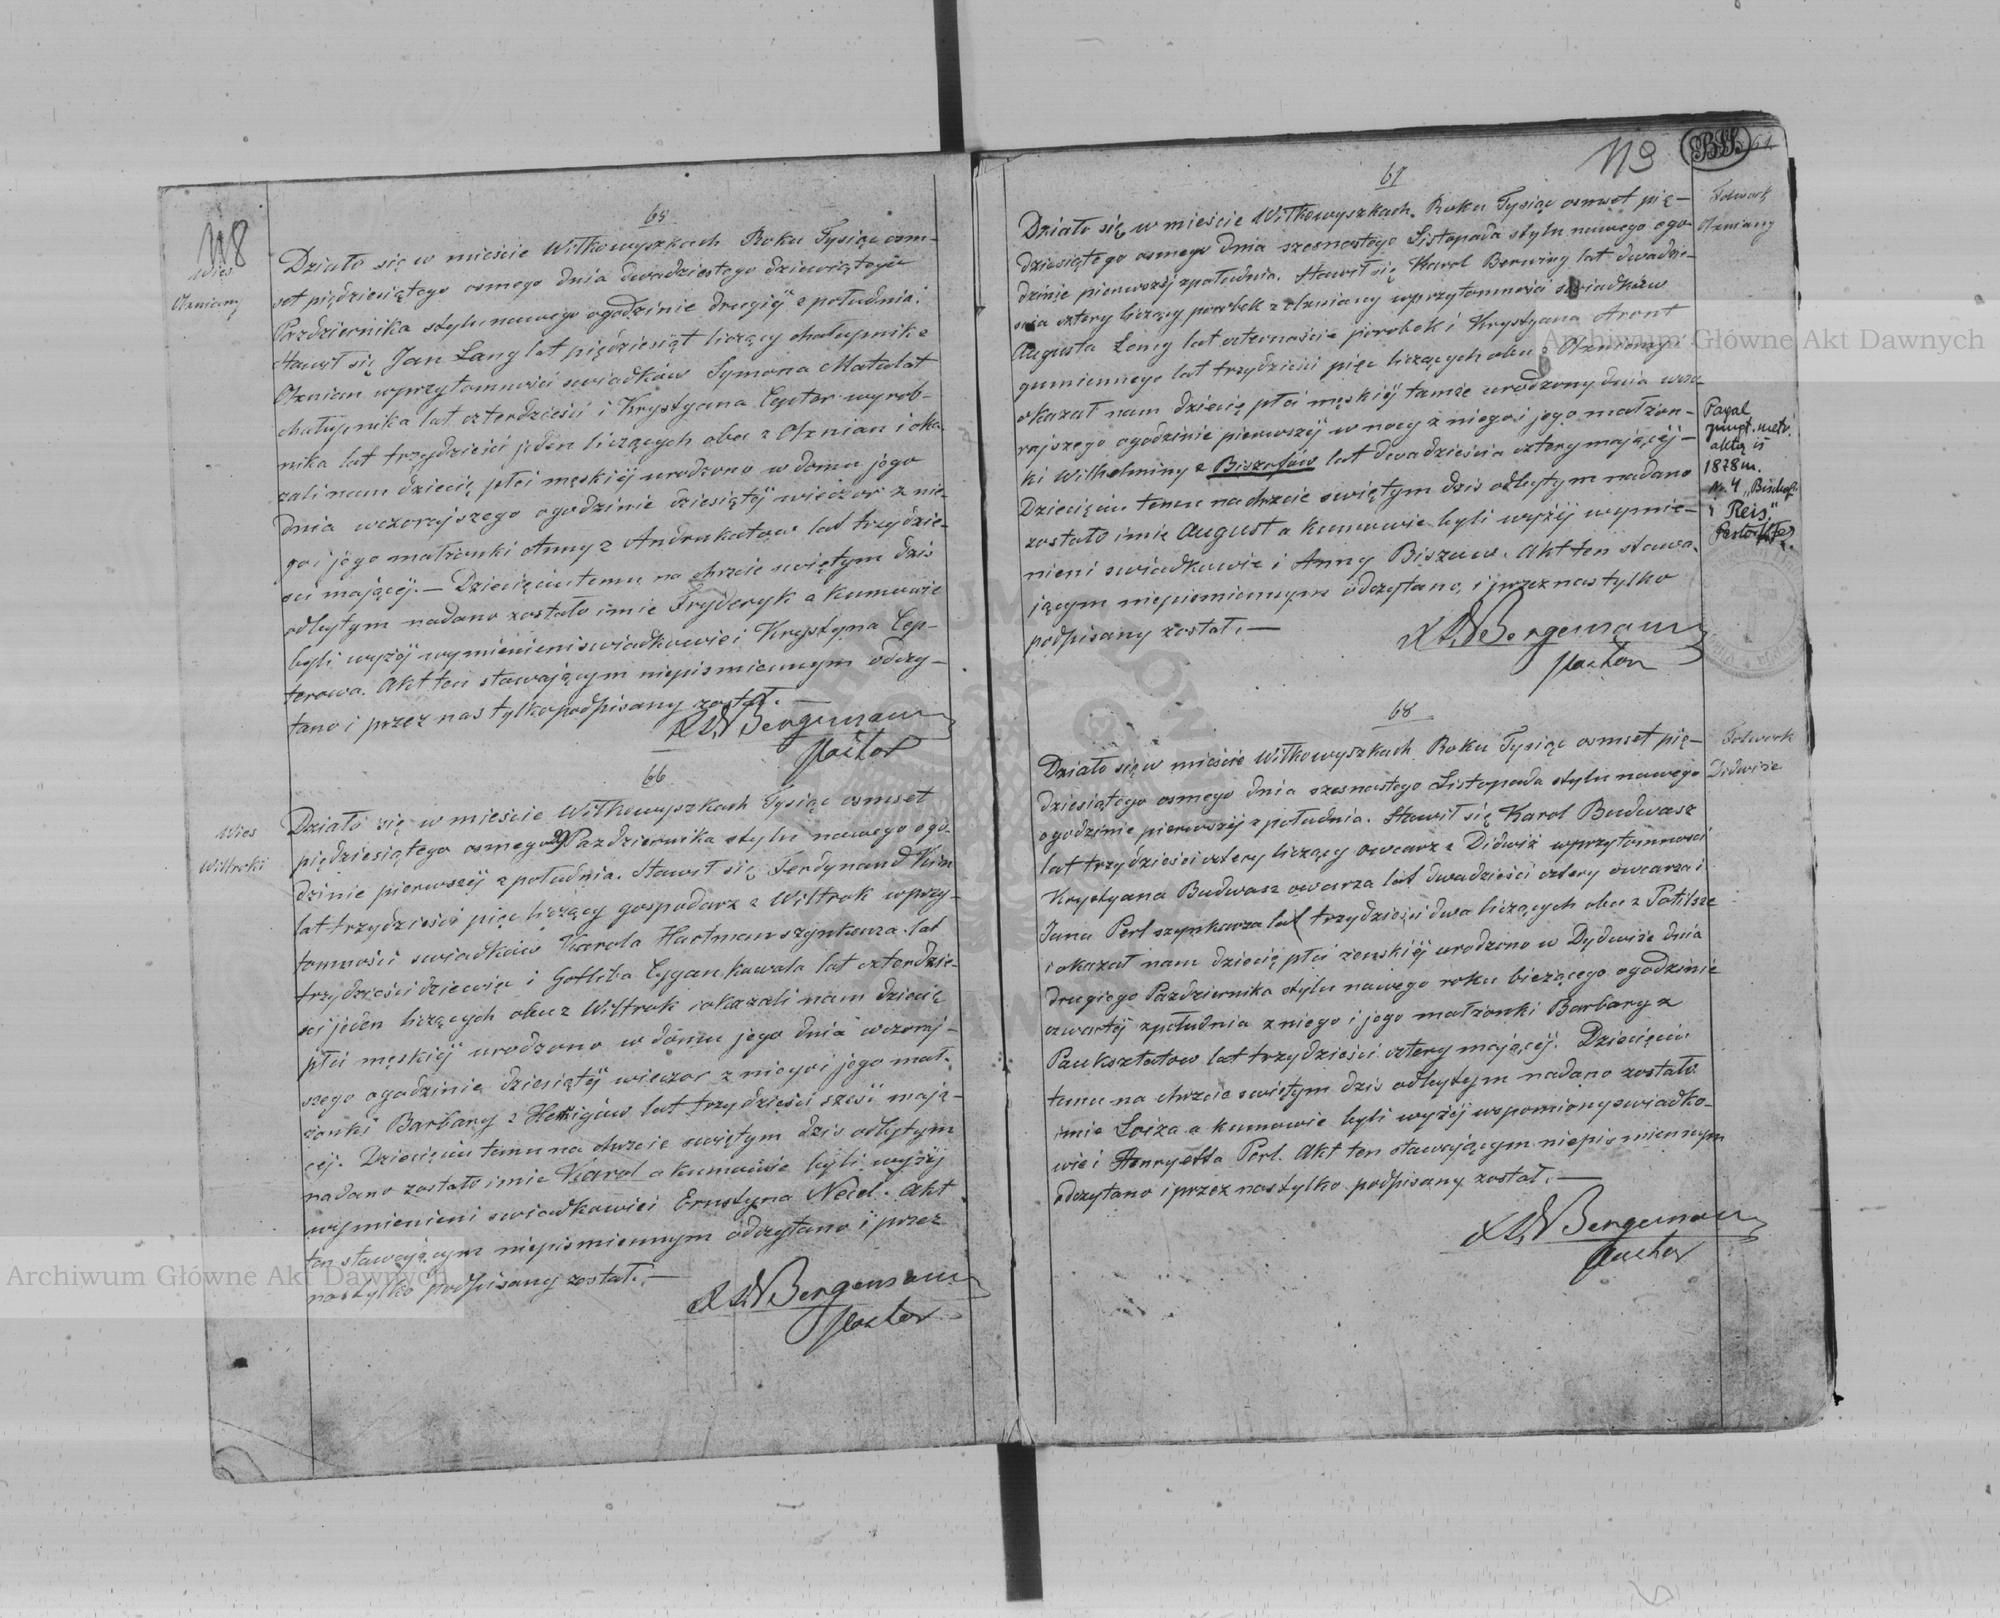 118
Wies
Ozniany
65
Działo się w mieście Wiłkowyszkach Roku Tysiąc osm-
set pięдziesiątego osmego dnia dwudziestego dziewiątego
Pazdziernika stylu nowego o godzinie drugiéj z południa.
Stawił się Jan Lang lat pięćdziesiąt liczący chałupnik z
Oznian w przytomności swiadków Symona Matulat
chałupnika lat czterdzieści i Krystyana Cepter wyrob-
nika lat trzydzieści jeden liczących obu z Oznian i oka-
zali nam dziecię płci męskiéj urodzone w domu jego
dnia wczorajszego o godzinie dziesiątéj wieczor z nie-
go i jego małżonki Anny z Andrukatow lat trzydzie-
ści mającéj. — Dziecięciu temu na chrzcie swiętym dzis
odbytym nadano zostało imie Fryderyk a kumowie
byli wyżéj wymienieni swiadkowie i Krystyna Cep-
terowa. Akt ten stawającym niepismiennym odczy-
tano i przez nas tylko podpisany został. —
Bergemann
Pastor
66
Wies
Wiltroki
Działo się w mieście Wiłkowyszkach Tysiąc osmset
pięдziesiątego osmego 29 Pazdziernika stylu nowego o go-
dzinie pierwszéj z południa. Stawił się Ferdynand
lat trzydzieści pięc liczący gospodarz z Wiltrok w przy-
tomności swiadków Karola Hartman szynkarza lat
trzydzieści dziewięc i Gotliba Cygan kowala lat czterdzie-
sci jeden liczących obu z Wiltrok i okazali nam dziecię
płci męskiéj urodzone w domu jego dnia wczoraj-
szego o godzinie dziesiątéj wieczor z niego i jego mał-
żonki Barbary z lat trzydzieści szesć mają-
céj. Dziecięciu temu na chrzcie swiętym dzis odbytym
nadano zostało imie Karol a kumowie byli wyżéj
wymienieni swiadkowie i Ernstyna Necel. Akt
ten stawającym niepismiennym odczytano i przez
nas tylko podpisany został. —
Bergemann
Pastor
119
67
Folwark
Ozniany
Działo się w mieście Wiłkowyszkach. Roku Tysiąc osmset pię-
dziesiątego osmego dnia szesnastego Listopada stylu nowego o go-
dzinie pierwszéj z południa. Stawił się Karol Berwing lat dwadzie-
scia cztery liczący parobek z Ozniany w przytomności swiadków
Augusta Lang lat czternascie parobek i Krystyana Arent
gumiennego lat trzydzieści pięc liczących obu z Oznianą
okazał nam dziecię płci męskiéj tamże urodzony dnia wczo-
rajszego o godzinie pierwszéj w nocy z niego i jego małżon-
ki Wilhelminy z Biszofów lat dwadzieścia cztery mającéj —
Dziecięciu temu na chrzcie swiętym dzis odbytym nadano
zostało imie August a kumowie byli wyżéj wymie-
nieni swiadkowie i Anny Biszuw. Akt ten stawa-
jącym niepismiennym odczytano, i przez nas tylko
podpisany został. —
Bergemann
Pastor
Pagal
metr.
aktą iš
1878 m.
Nr. 4 „Bischof
Reis."
68
Folwark
Didwize
Działo się w mieście Wiłkowyszkach Roku Tysiąc osmset pię-
dziesiątego osmego dnia szesnastego Listopada stylu nowego
o godzinie pierwszéj z południa. Stawił się Karol Budwasz
lat trzydzieści cztery liczący owczarz z Didwiż w przytomności
Krystyana Budwasz owczarza lat dwadzieści cztery owczarza i
Jana Perl szynkarza lat trzydzieści dwa liczących obu z Patilsze
i okazał nam dziecię płci żenskiéj urodzone w Dydwiże dnia
drugiego Pazdziernika stylu nowego roku bieżącego o godzinie
czwartéj z południa z niego i jego małżonki Barbary z
Pauksztatow lat trzydzieści cztery mającéj. Dziecięciu
temu na chrzcie swiętym dzis odbytym nadano zostało
imie Loiza a kumowie byli wyżéj wspomiony swiadko-
wie i Henryetta Perl. Akt ten stawającym niepismiennym
odczytano i przez nas tylko podpisany został. —
Bergemann
Pastor
Archiwum Główne Akt Dawnych
Archiwum Główne Akt Dawnych